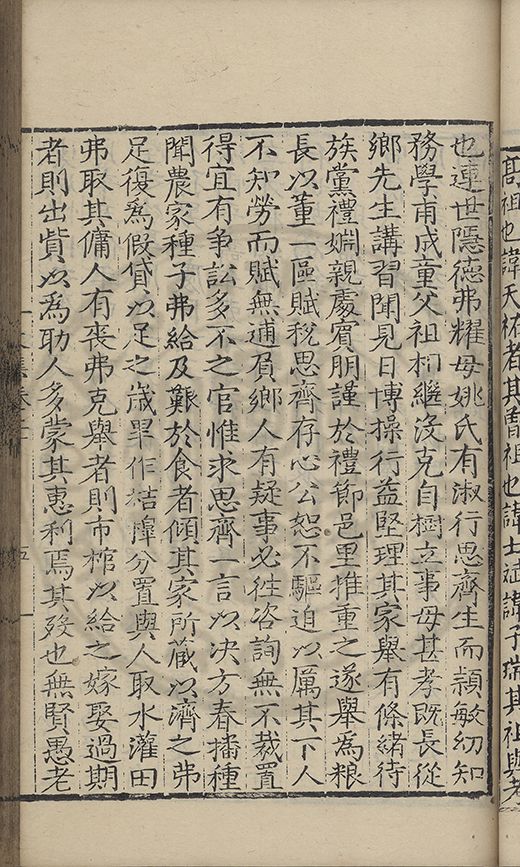 髙祖也諱天祐者其曾祖也諱士
諱子瑞其祖與考
也連世隱德弗耀母姚氏有淑行思齊生而頴敏㓜知
務學甫成童父祖相繼沒克自樹立事母甚孝既長從
鄉先生講習聞見日博操行益堅理其家舉有條緒待
族黨禮婣親處賓朋謹於禮節邑里推重之遂舉為粮
長以董一區賦稅思齊存心公恕不驅迫以厲其下人
不知勞而賦無逋負鄉人有疑事必徃咨詢無不裁置
得宜有爭訟多不之官惟求思齊一言以决方春播種
聞農家種子弗給及艱於食者傾其家所蔵以濟之弗
足復為假貸以足之歳旱作桔橰分置與人取水灌田
弗取其傭人有喪弗克舉者則市棺以給之嫁娶過期
者則出貲以為助人多蒙其惠利焉其歿也無賢愚老
五